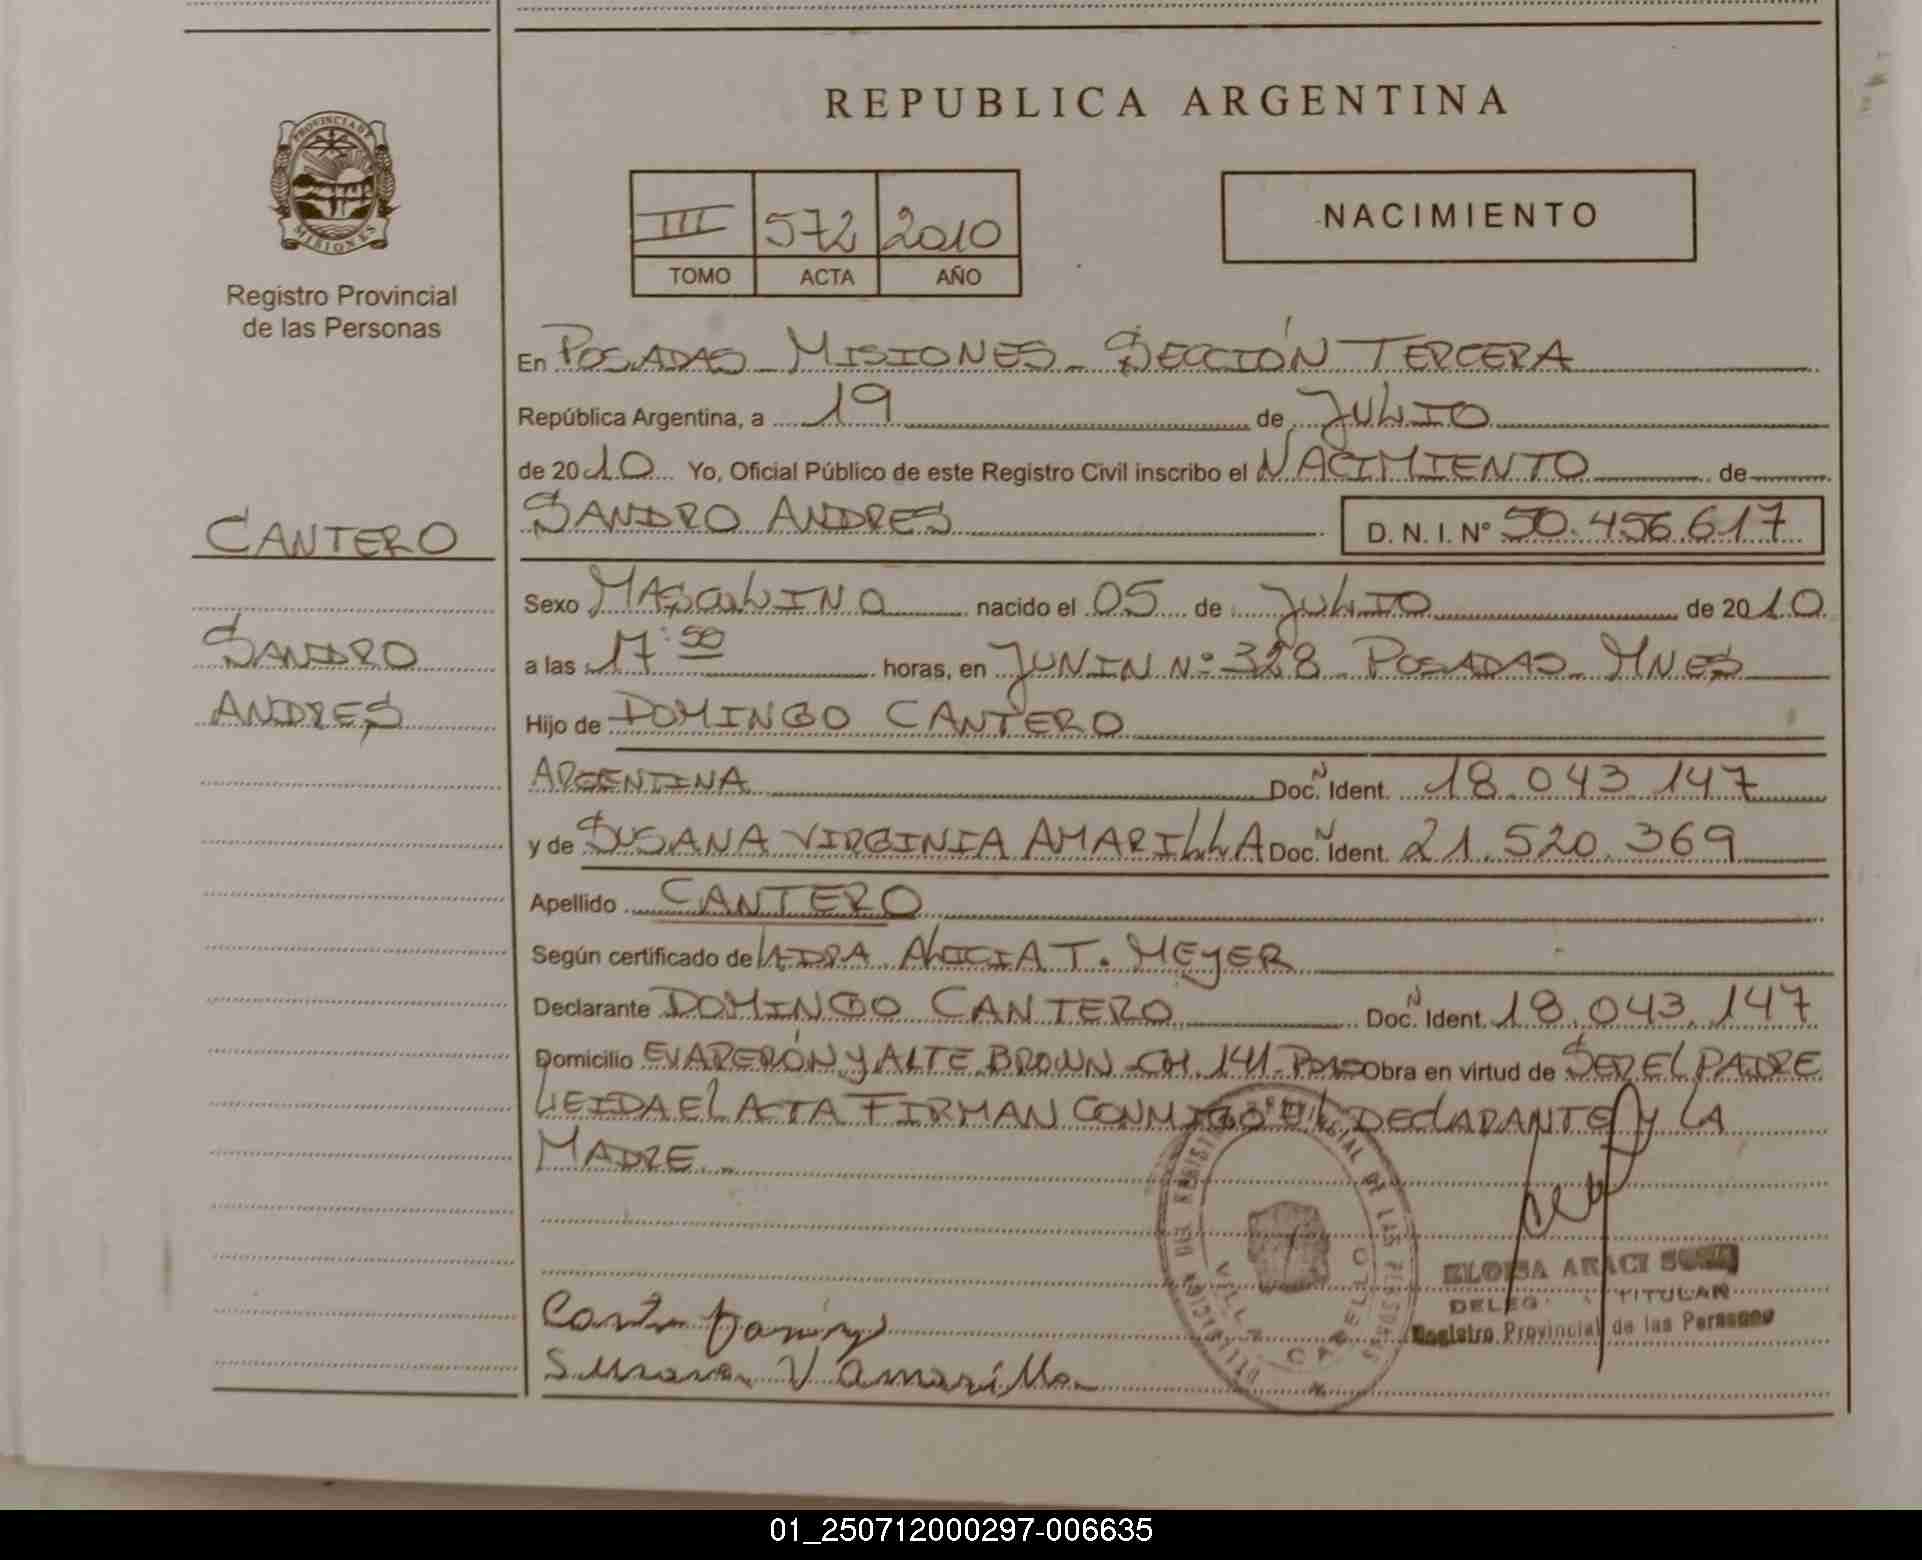 REPUBLICA ARGENTINA
PROVINCIA DE
MISIONES
Registro Provincial
de las Personas
III 572 2010
TOMO ACTA AÑO
NACIMIENTO
En POSADAS - MISIONES - SECCIÓN TERCERA
República Argentina, a 19 de JULIO
de 2010 Yo, Oficial Público de este Registro Civil inscribo el NACIMIENTO de
CANTERO
SANDRO ANDRES D. N. I. Nº 50.456.617
Sexo MASCULINO nacido el 05 de JULIO de 2010
SANDRO
ANDRES
a las 17:50 horas, en JUNIN Nº 328 POSADAS - MNES
Hijo de DOMINGO CANTERO
ARGENTINA Doc. N Ident. 18.043.147
y de SUSANA VIRGINIA AMARILLA Doc. N Ident. 21.520.369
Apellido CANTERO
Según certificado de LIDRA. ALICIA T. MEYER
Declarante DOMINGO CANTERO Doc. N Ident. 18.043.147
Domicilio EVA PERÓN Y ALTE BROWN - CH. 141 - PDAS Obra en virtud de SER EL PADRE
LEIDA EL ACTA FIRMAN CONMIGO EL DECLARANTE Y LA
MADRE.-
DELEGACION DEL REGISTRO PROVINCIAL DE LAS PERSONAS
VILLA CABELLO
ELOISA ARACI
TITULAR
Registro Provincial de las Personas
Susana V Amarilla
01_250712000297-006635